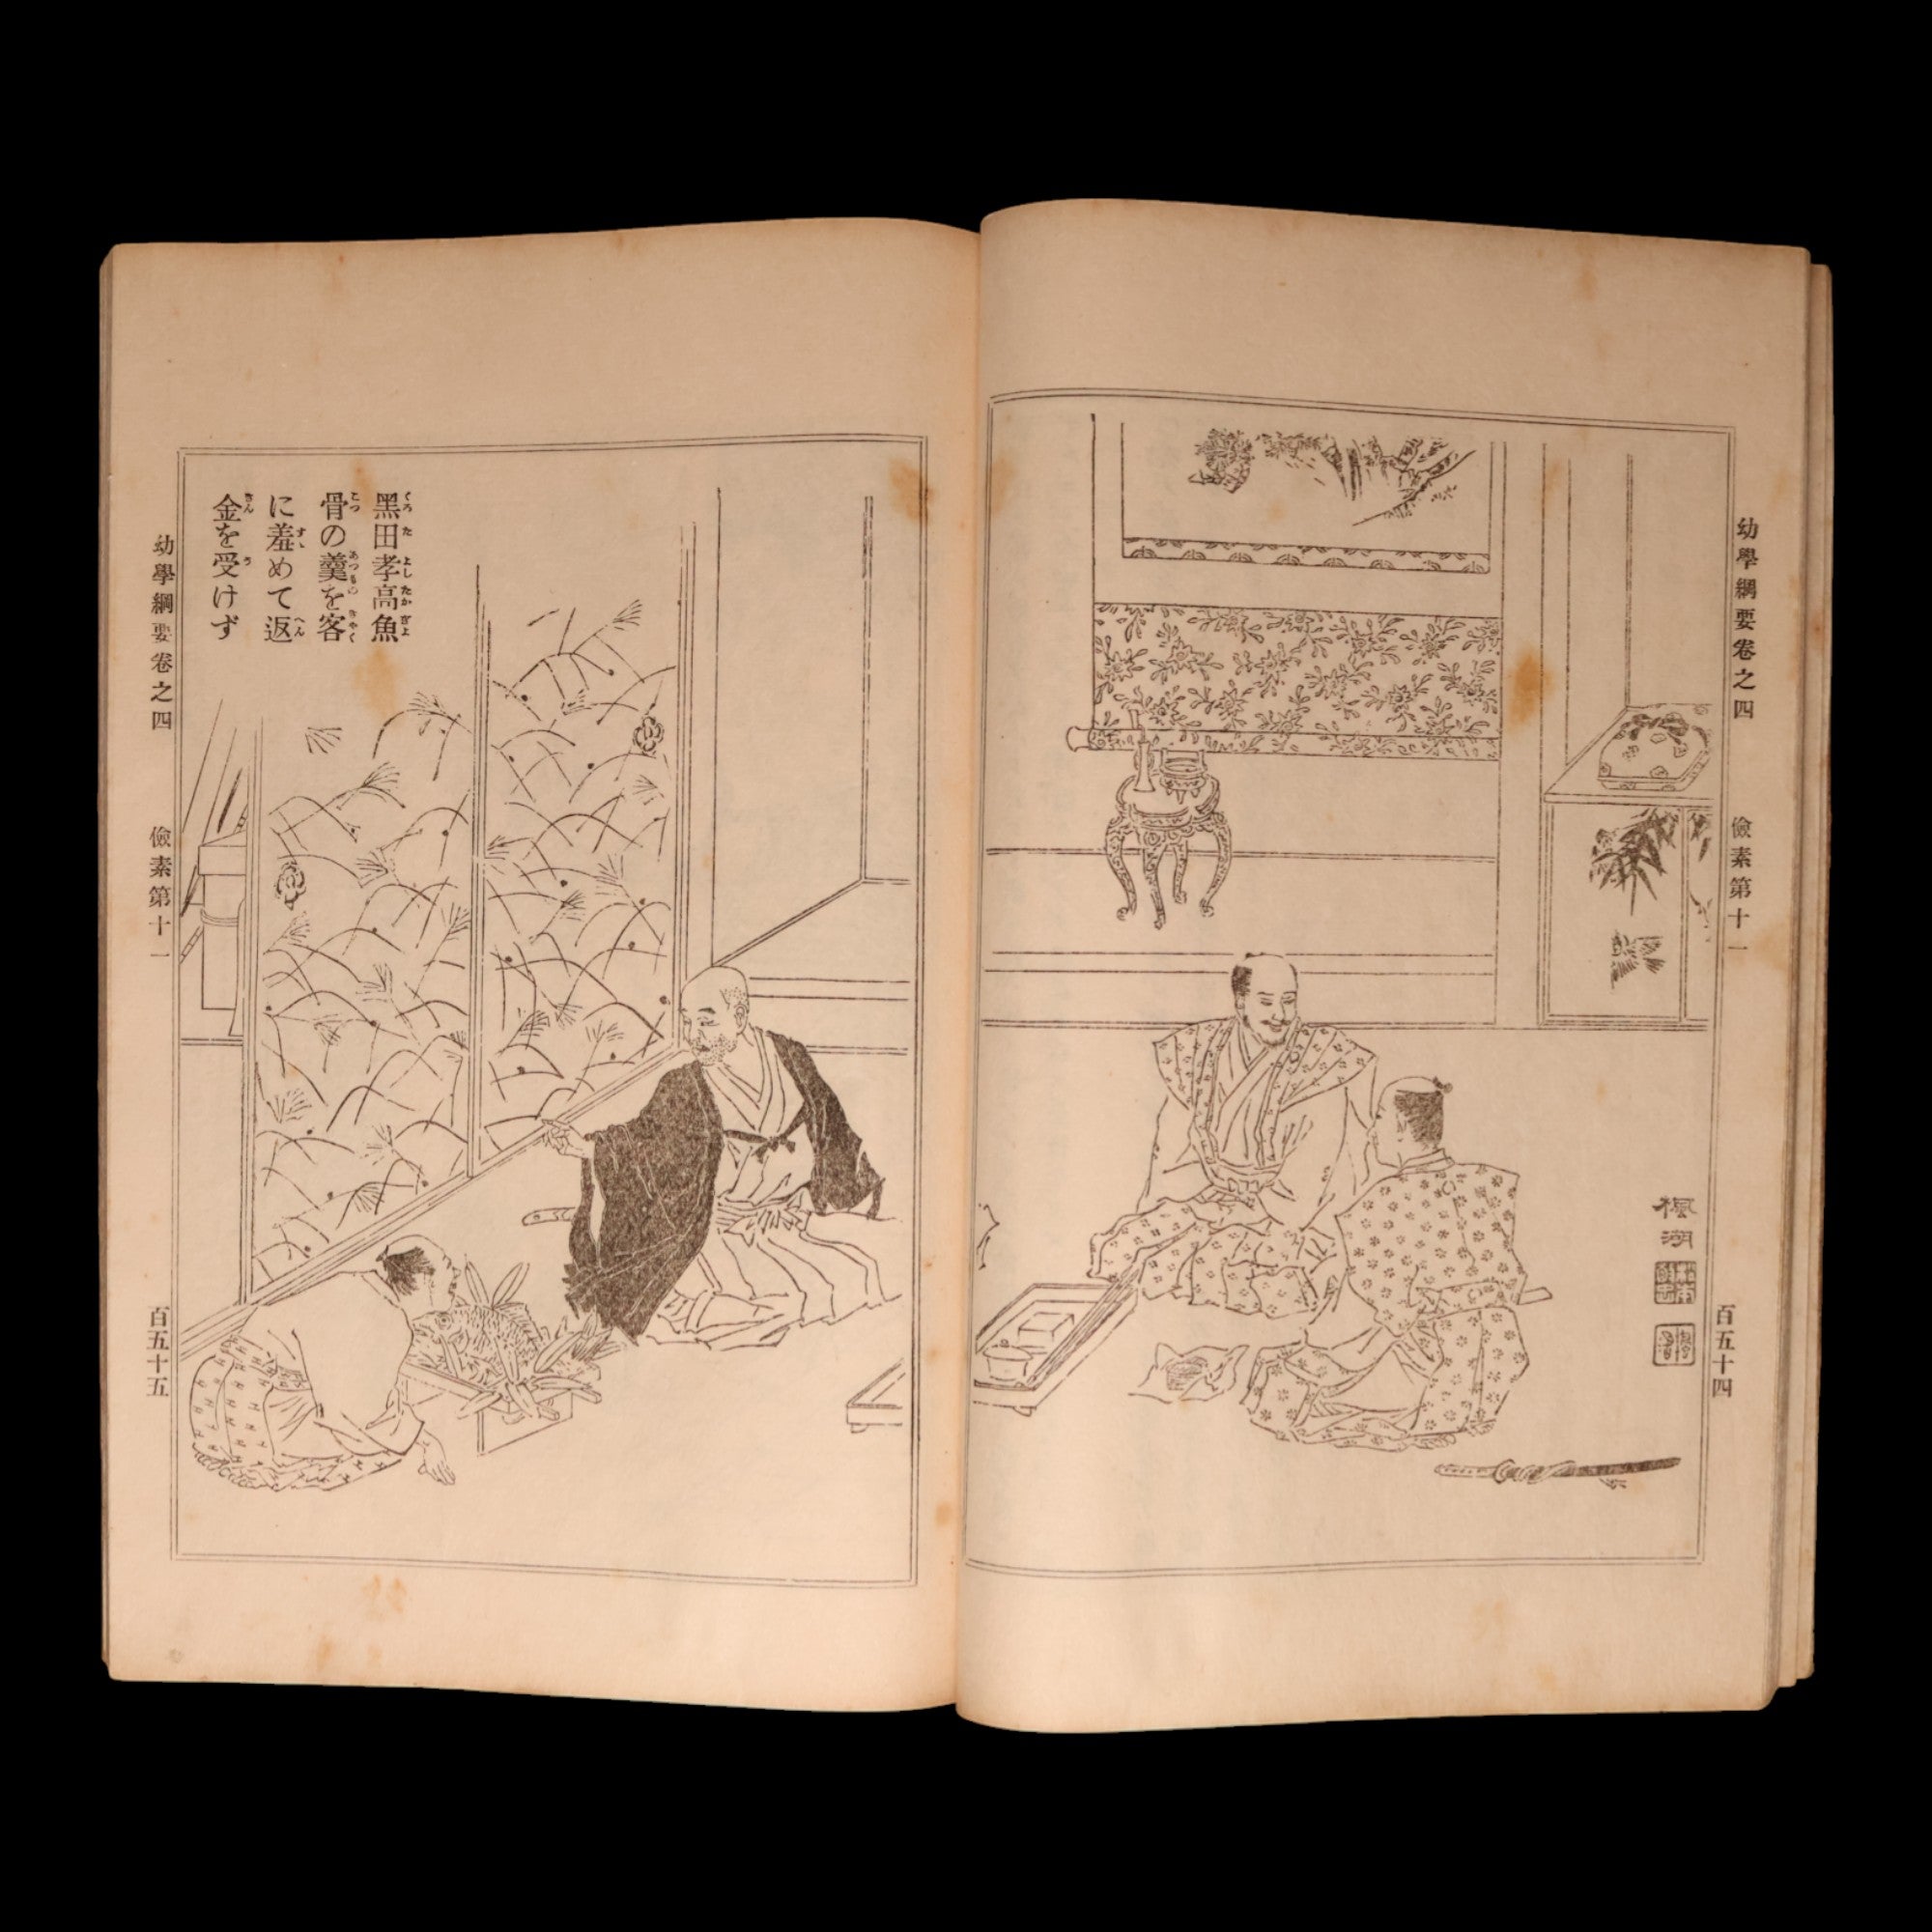 幼學綱要卷之四 儉素第十一 百五十四
楓湖
黑田孝高魚
骨の羹を客
に羞めて返
金を受けず
幼學綱要卷之四 儉素第十一 百五十五